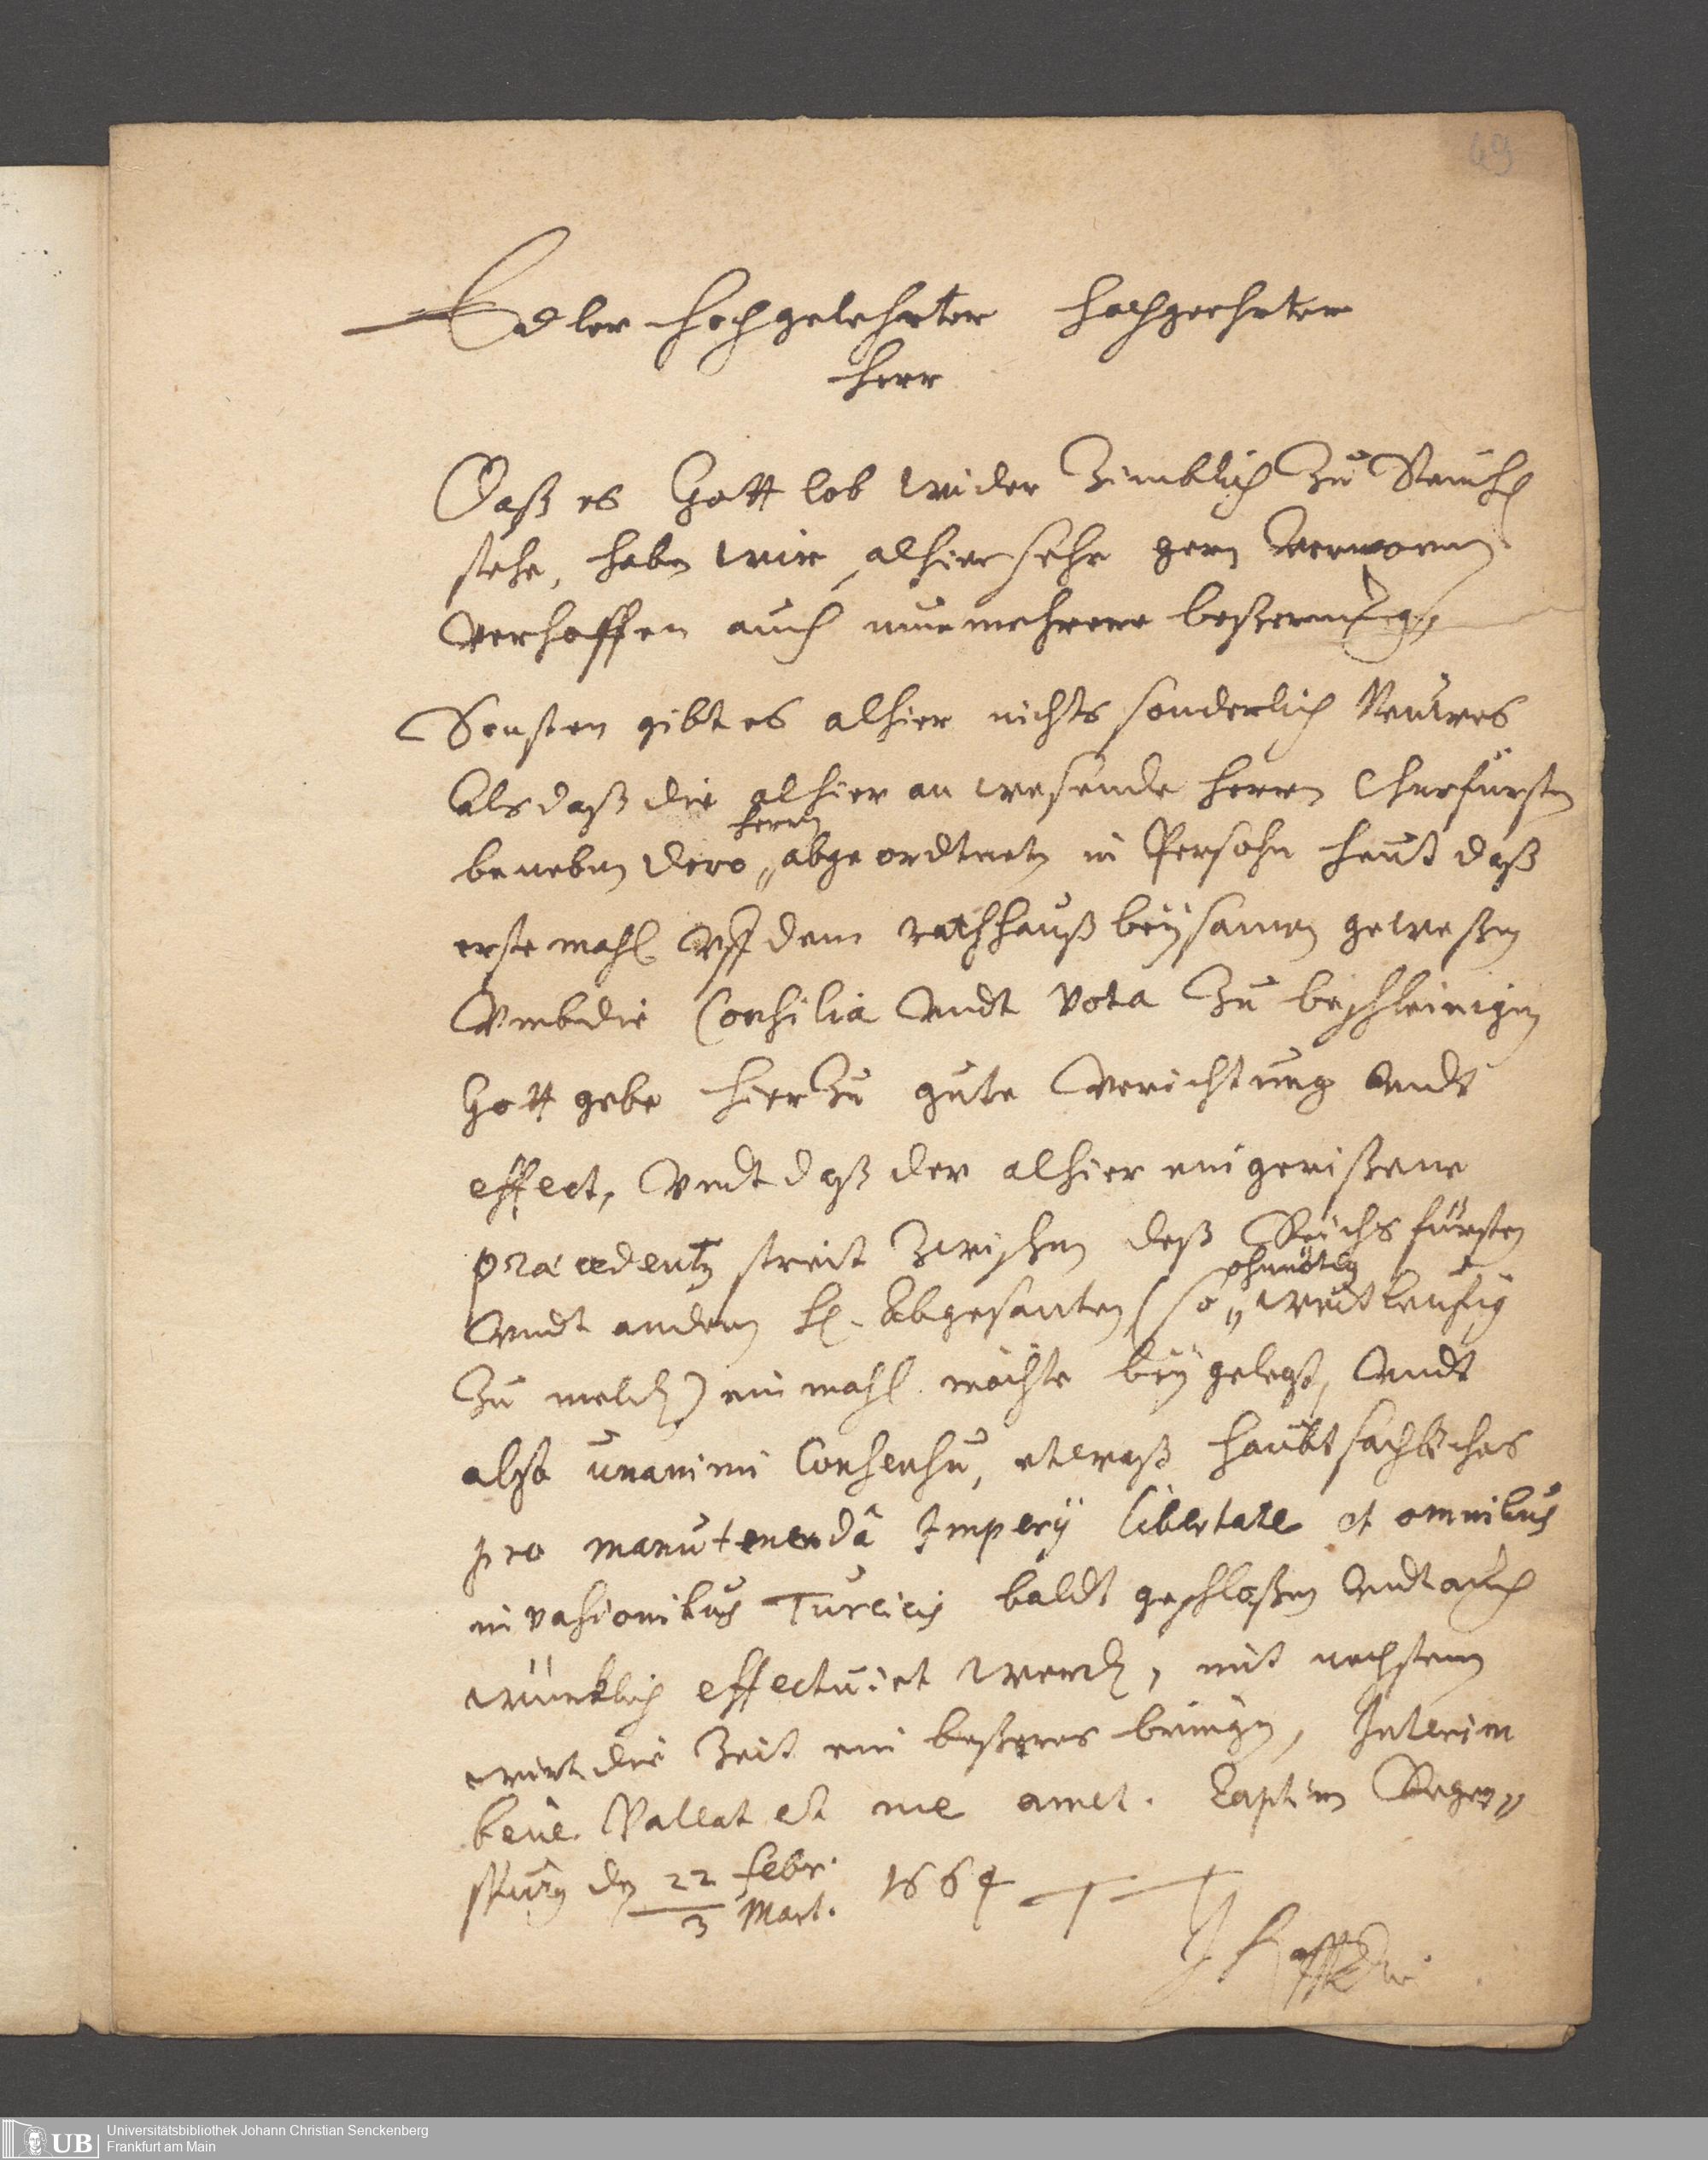 69
Edler hochgelehrter hochgeehrter
Herr
Daß es Gott lob wider Zimblich Zu
stehe, haben wir alhier sehr gern vernomen
verhoffen auch nunmehrere beßerung
Sonsten gibt es alhier nichts sonderlich Neuwes
Als daß die alhier an wesende herrn Churfürsten
beneben dero herrn abgeordtneten in Persohn heut daß
erste mahl Vff dem rathhauß beÿsamen geweßen
Vmb die Consilia Vndt Vota Zu beschleinigen
Gott gebe hierZu gute Verichtung Vndt
effect, Vndt daß der alhier eingerißene
præcedentz streit Zwischen deß Reichs fürsten
Vndt andern Abgesanten (so ohnnötig weitleufig
Zu melden) ein mahl möchte beÿ gelegt, Vndt
alßo unanimi Consensu, etwaß haubtsachliches
pro manutenendâ Imperÿ libertate et omnibus
invasionibus Turcicis baldt geschloßen Vndt auch
würcklich effectuiret werden, mit nechstem
wirt die Zeit ein beßeres bringen, Interim
bene Valleat et me amet. Raptim Regen„
spurg den 22 febr. / 3 Mart. 1664
Universitätsbibliothek Johann Christian Senckenberg
UB Frankfurt am Main